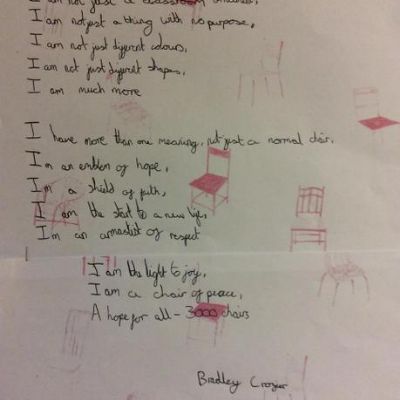 I am not just a classroom
I am not just a thing with no purpose,
I am not just different colours,
I am not just different shapes,
I am much more
I have more than one meaning, not just a normal chair,
I'm an emblem of hope,
I'm a shield of
I am the start to a new life,
I'm an of respect
I am the light to joy,
I am a chair of peace,
A hope for all - 3000 chairs
Bradley Crozier